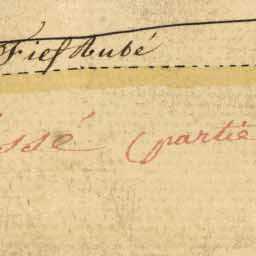 Fief Aubé
ssé (partie